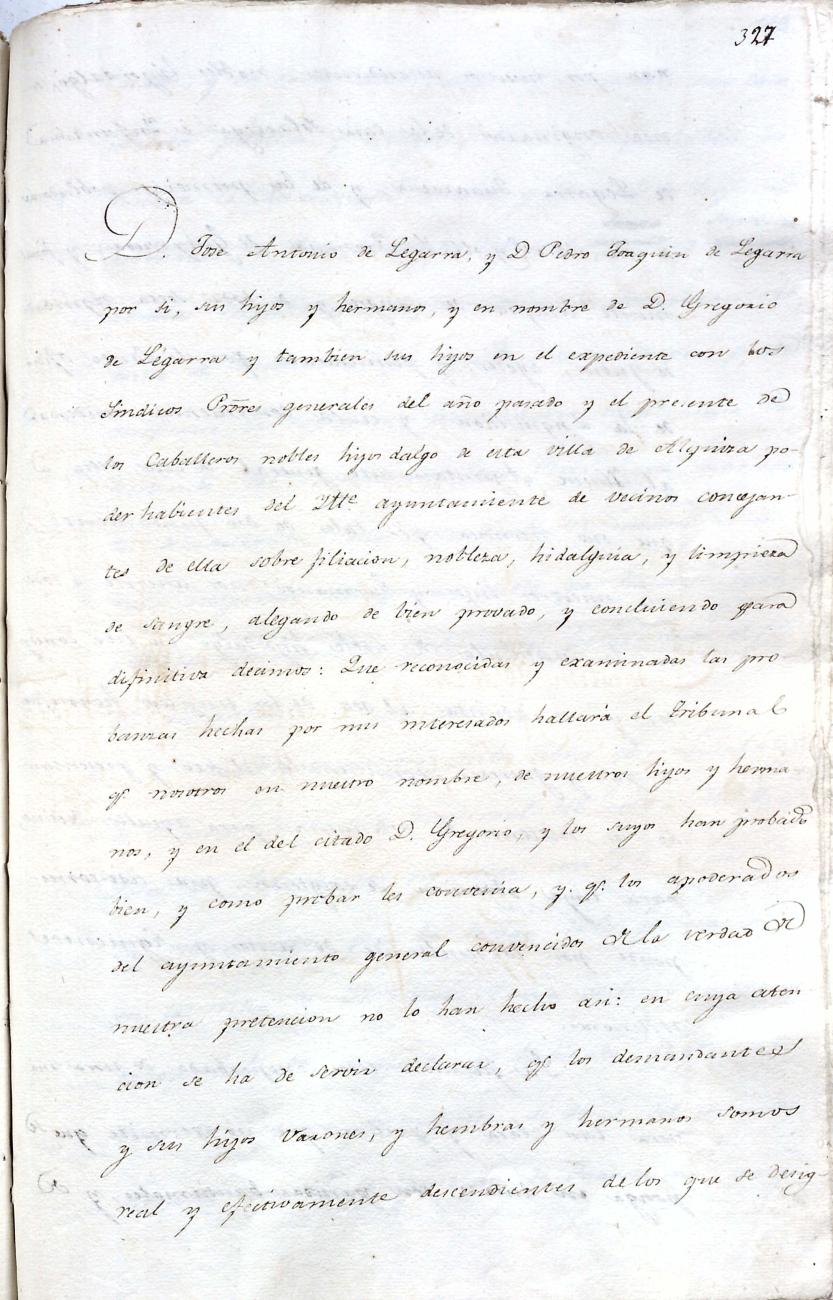 327
D. Jose Antonio de Legarra, y D Pedro Joaquin de Legarra
por si, sus hijos y hermanos, y en nombre de D. Gregorio
de Legarra y tambien sus hijos en el expediente con los
Sindicos Prõres generales del año pasado y el presente de
los Caballeros nobles hijos dalgo de esta villa de Alquiza po-
der habientes del Ittê ayuntamiente de vecinos concejan-
tes de ella sobre filiacion, nobleza, hidalguia, y limpieza
de sangre, alegando de bien provado, y concluiendo para
difinitiva decimos: Que reconocidas y examinadas las pro-
banzas hechas por mis interesados hallará el Tribunal
q.e nosotros en nuestro nombre, de nuestros hijos y herma-
nos, y en el del citado D. Gregorio, y los suyos han probado
bien, y como probar les convenia, y q.e los apoderados
del ayuntamiento general convencidos de la verdad de
nuestra pretencion no lo han hecho asi: en cuya aten
cion se ha de servir declarar, q.e los demandantes
y sus hijos varones, y hembras y hermanos somos
real y efectivamente descendientes de los que se desig-